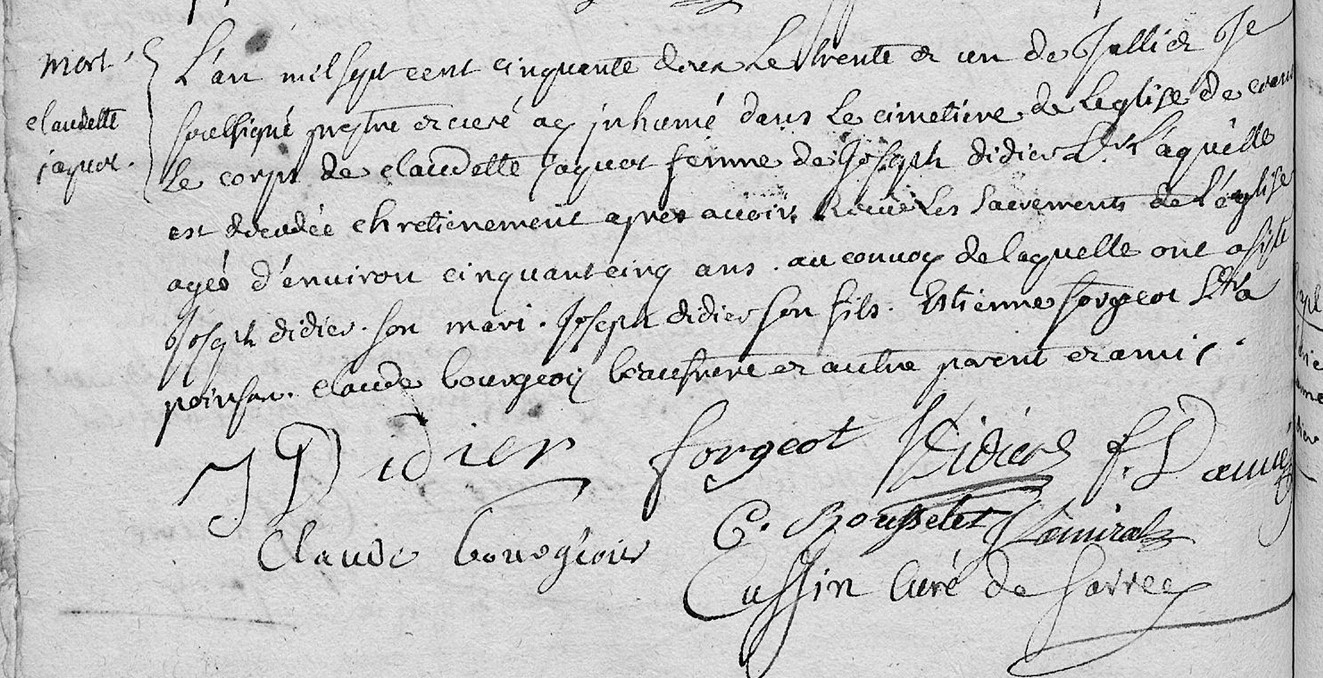 mort
claudette
jaquot.
L'an mil sept cent cinquante deux Le trente et un de Juillet Je
soussigné prestre et curé ay inhumé dans Le cimetiere de Leglise de
Le corps de claudette jaquot femme de Joseph didier Laquelle
est décédée chretienement apres avoir Receu Les sacrements de L'église
agéé d'environ cinquante cinq ans. au convoy de laquelle ont assisté
Joseph didier son mari. Joseph didier son fils. Estienne forgeot
poinson. claude bourgeois beaufrere et autre parent et amis.
J Didier forgeot J Didier
Claude bourgeois C. Rousselet Lamiral
Cussin Curé de Sarrey